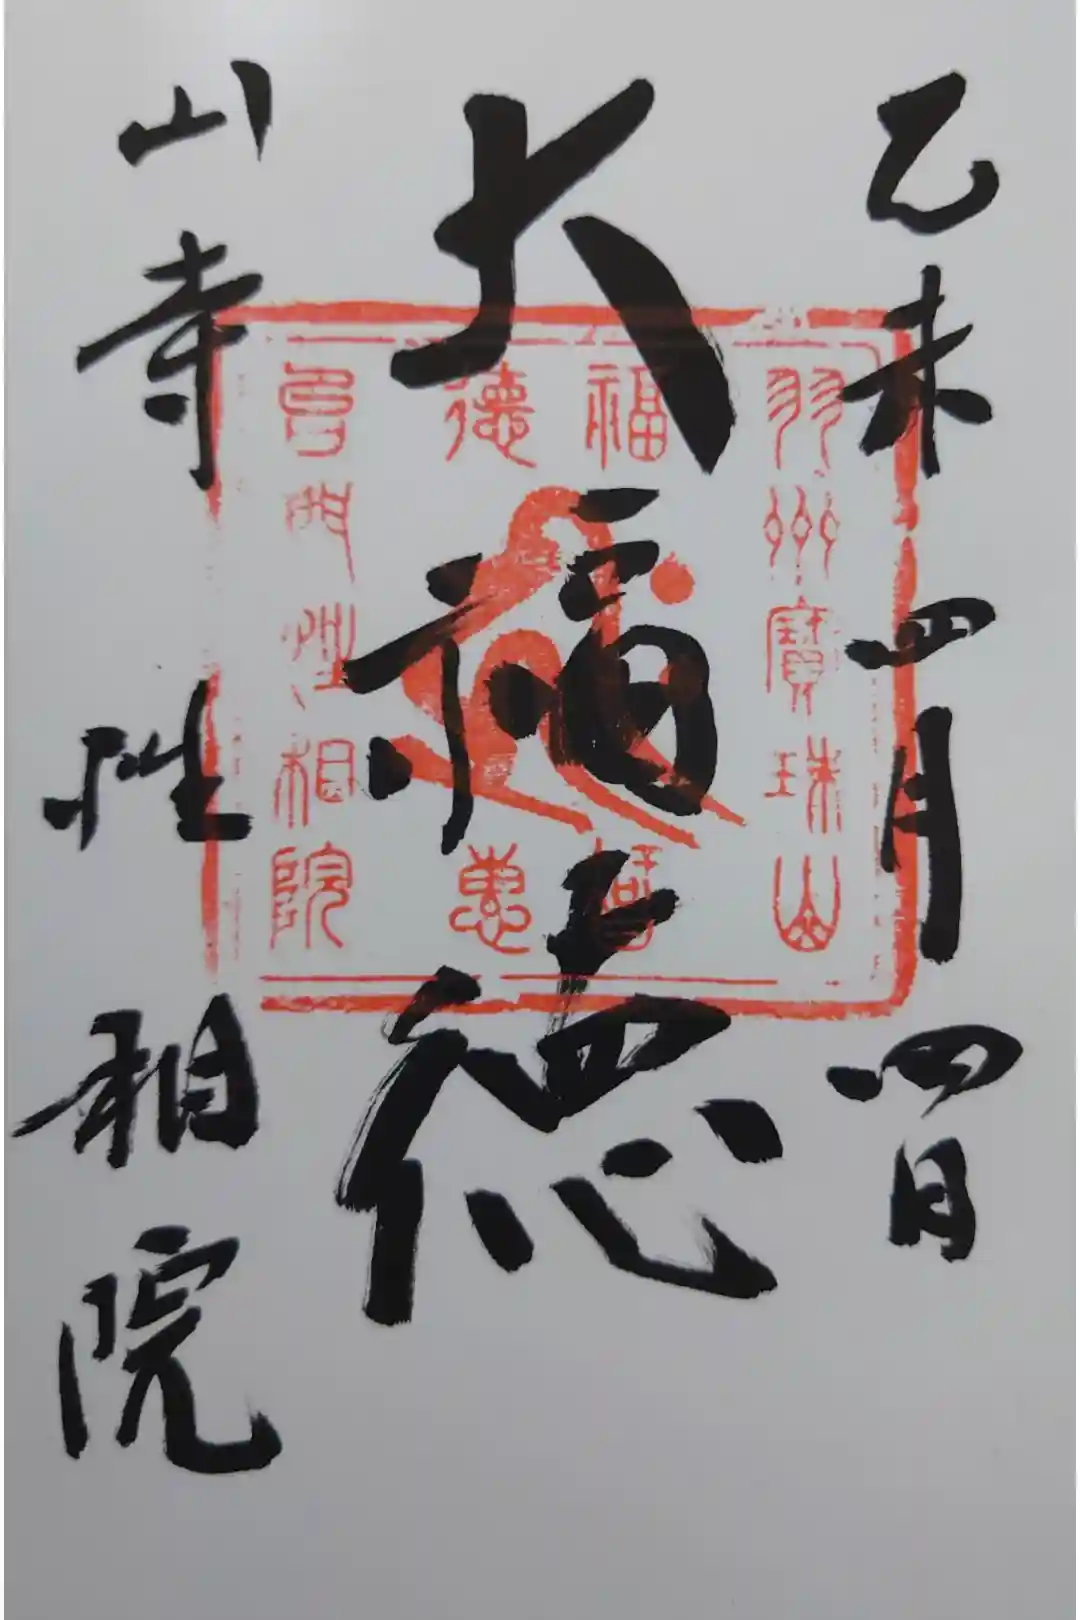 乙未 四月 四日
大福德
山寺 性相院
羽州寶珠山
福德
智慧
性相院